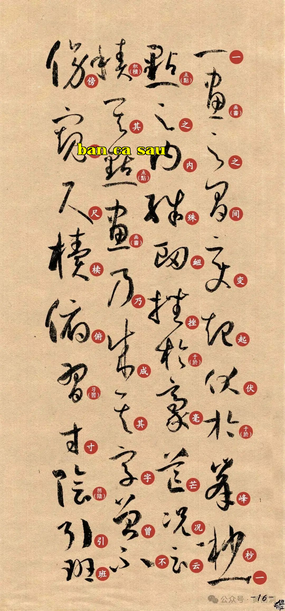 一畫之間變起伏於峯杪一
點之内殊衄挫於豪芒况云
積其點畫乃成其字曾不
傍窺尺櫝俯習寸陰引班
ban ca sau
公众号
-16-